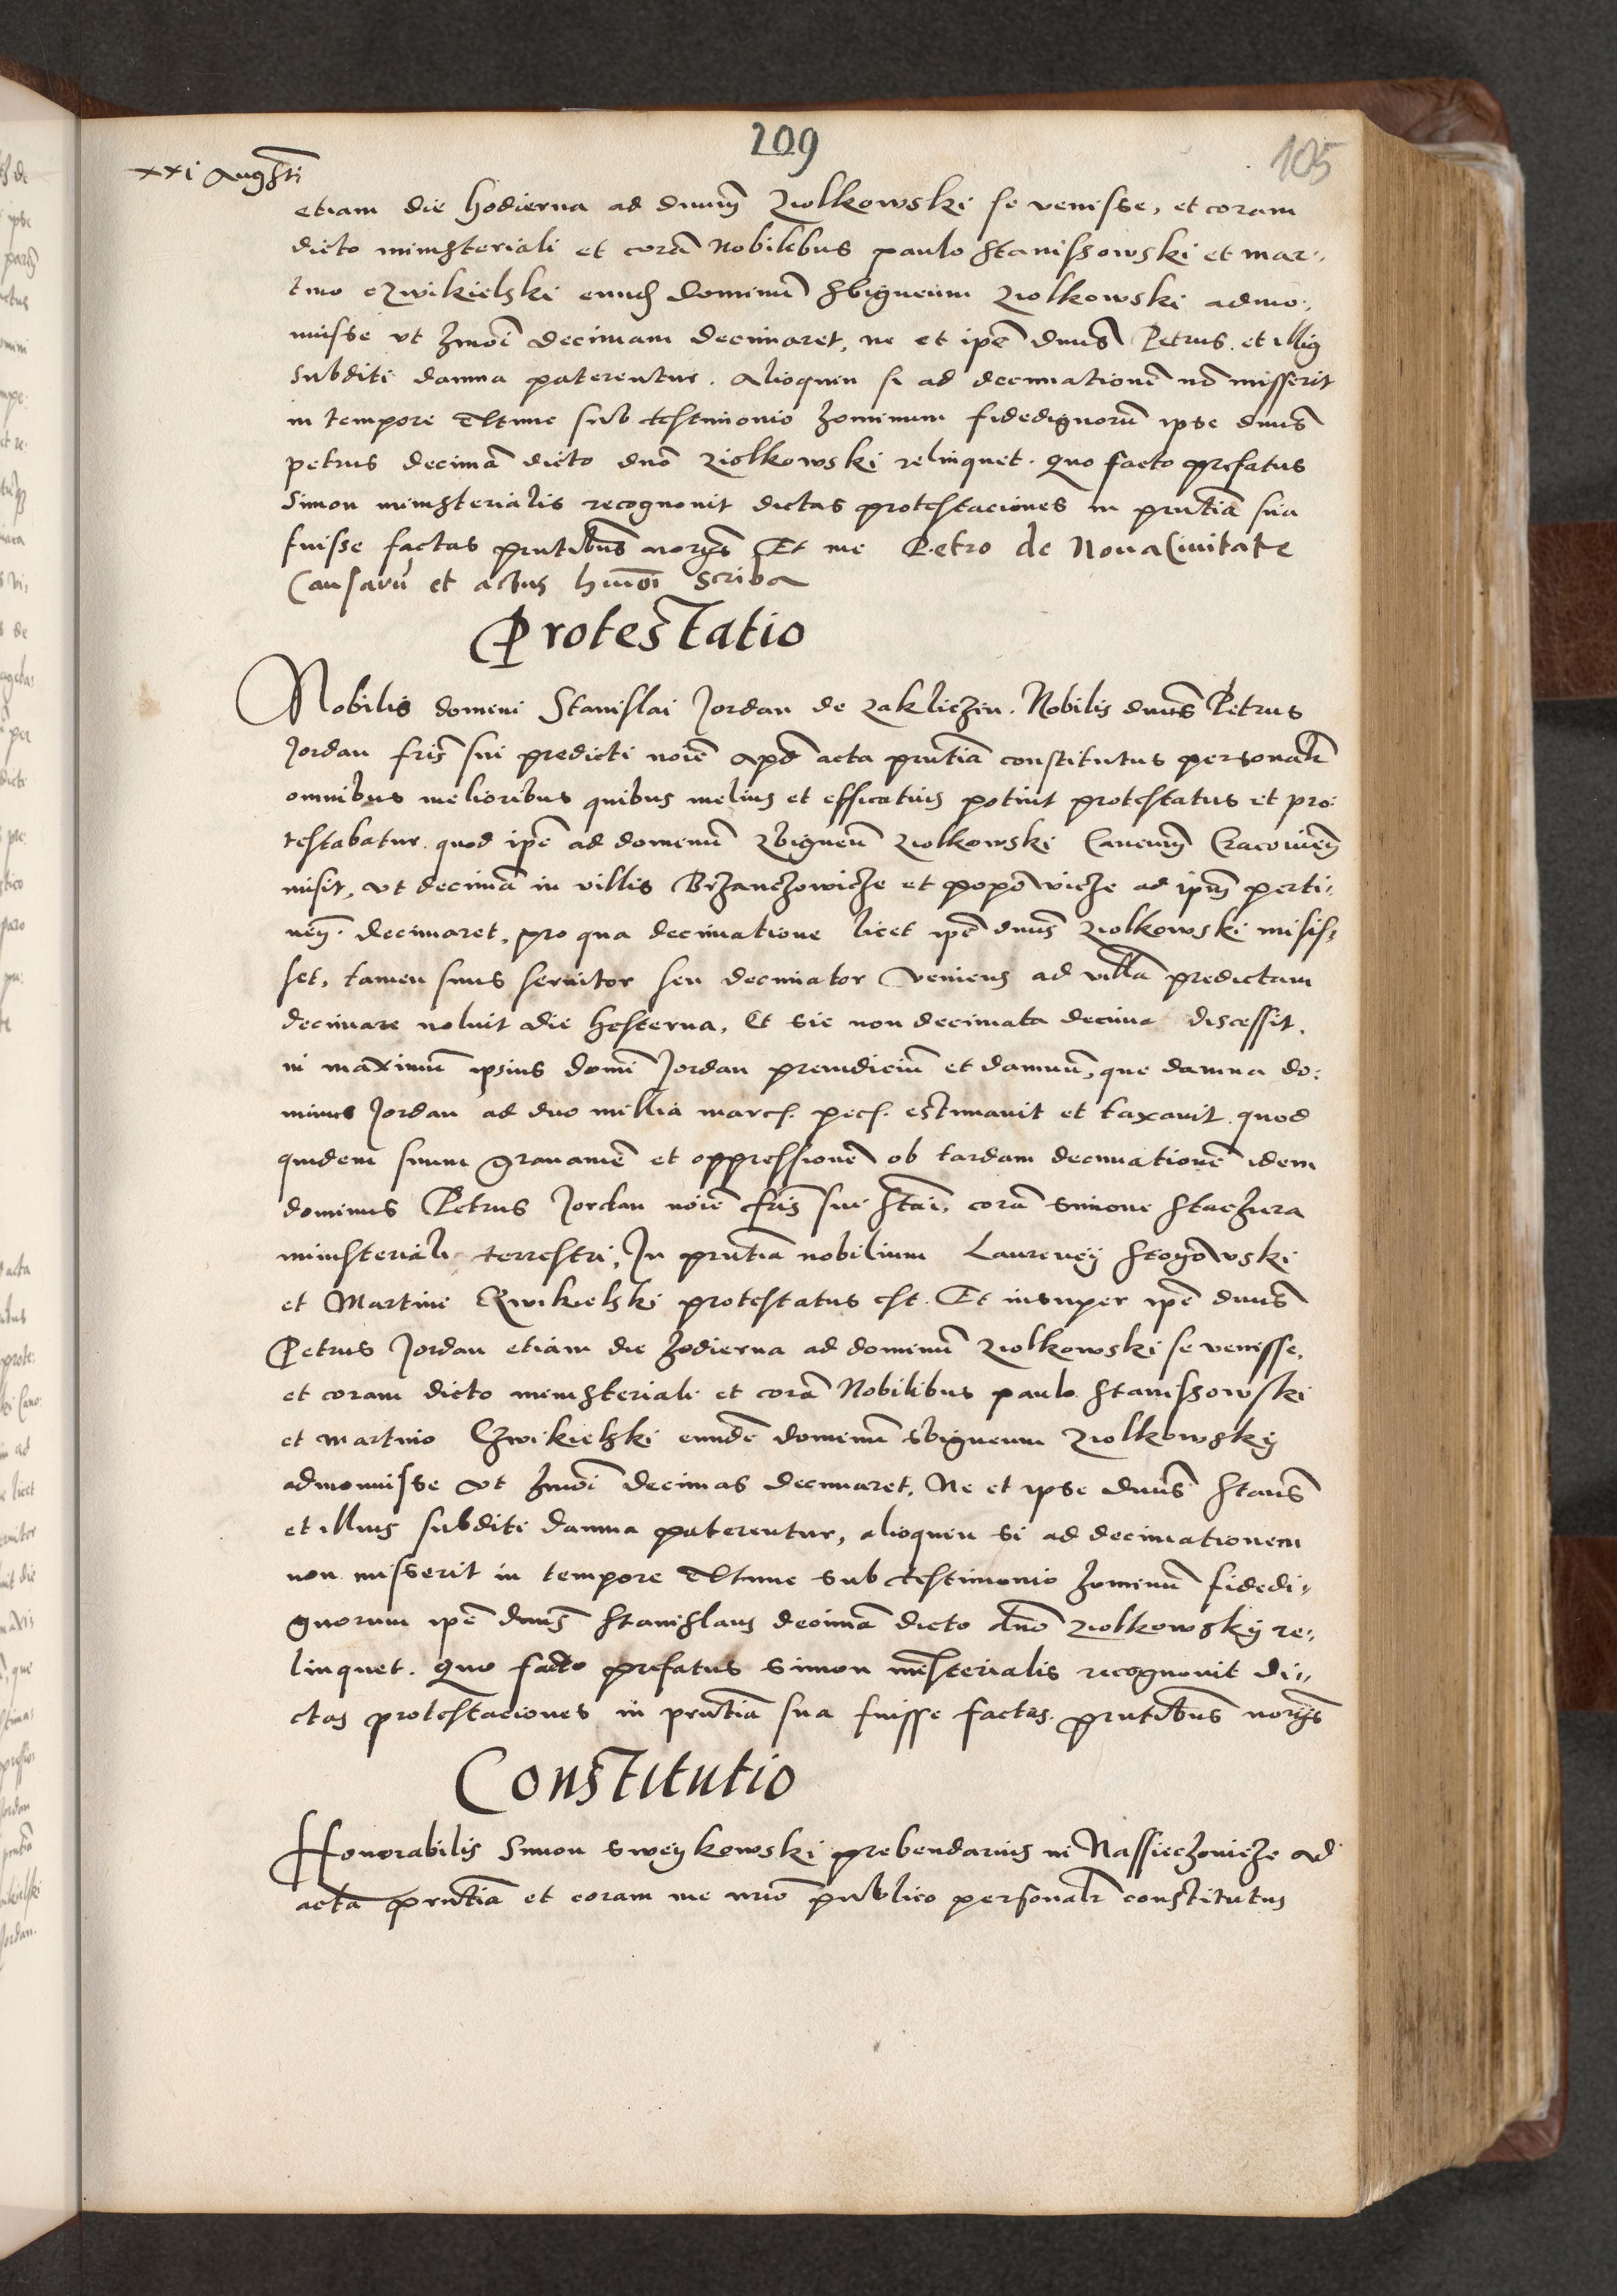 209
105
xxi Augusti
etiam die hodierna ad dnum Ziolkowski se venisse, et coram
dicto ministeriali et corā Nobilibus paulo Stanissowski et mar-
tino czwikielski eundē dominū Sbigneum Ziolkowski admo-
nuisse vt hmōi decimam decimaret, ne et ipē dnus Petrus et illius
subditi damna paterentur. Alioquin si ad decimationē nō misserit
in tempore Extunc sub testimonio hominum fidedignorū ipse dnus
petrus decimā dicto dnō Ziolkowski relinquet. Quo facto prefatus
Simon ministerialis recognouit dictas protestaciones in pntia sua
fuisse factas pntibus Et me Petro de Noua Ciuitate
Causarū et actus hmōi scriba
Protestatio
Nobilis domini Stanislai Jordan de Zakliczin. Nobilis dnus Petrus
Jordan fris sui predicti noīe apd acta pntia constitutus personalr
omnibus melioribus quibus melius et efficatius potuit protestatus et pro-
testabatur. quod ipē ad dominū Zbigneū Ziolkowski Canonicū Cracovień
misit, vt decimā in villis Brzanczowicze et popowicze ad ipm perti-
neñ. decimaret, pro qua decimatione licet ipē dnus Ziolkowski misis-
set, tamen suus seruitor seu decimator veniens ad villā predictam
decimare noluit die hesterna, Et sic non decimata decima discessit,
in maximū ipsius domi Jordan preiudiciū et damnū, que damna do-
minus Jordan ad duo millia marcs. pecs. estimauit et taxauit. quod
quidem suum grauamē et oppressionē ob tardam decimationē idem
dominus Petrus Jordan noīe fris sui Stai, corā Simone Staczura
ministeriali terrestri, In pntia nobilium Laurency Stogowski
et Martini Czwikielski protestatus est. Et insuper ipē dnus
Petrus Jordan etiam die hodierna ad dominū Ziolkowski se venisse,
et coram dicto ministeriali et corā Nobilibus paulo Stanissowski
et martino Czwikielski eundē dominū Sbigneum Ziolkowsky
admonuisse vt hmōi decimas decimaret, Ne et ipse dnus Staus
et illius subditi damna paterentur, alioquin si ad decimationem
non misserit in tempore Extunc sub testimonio hominū fidedi-
gnorum ipē dnus Stanislaus decimā dicto dnō Ziolkowsky re-
linquet. Quo facto prefatus Simon mīsterialis recognouit di-
ctas protestaciones in pntia sua fuisse factas. pntibus
Constitutio
Honorabilis Simon Sweykowski prebendarius in Nassieczovicze ad
acta pntia et coram me nrio publico personalr constitutus